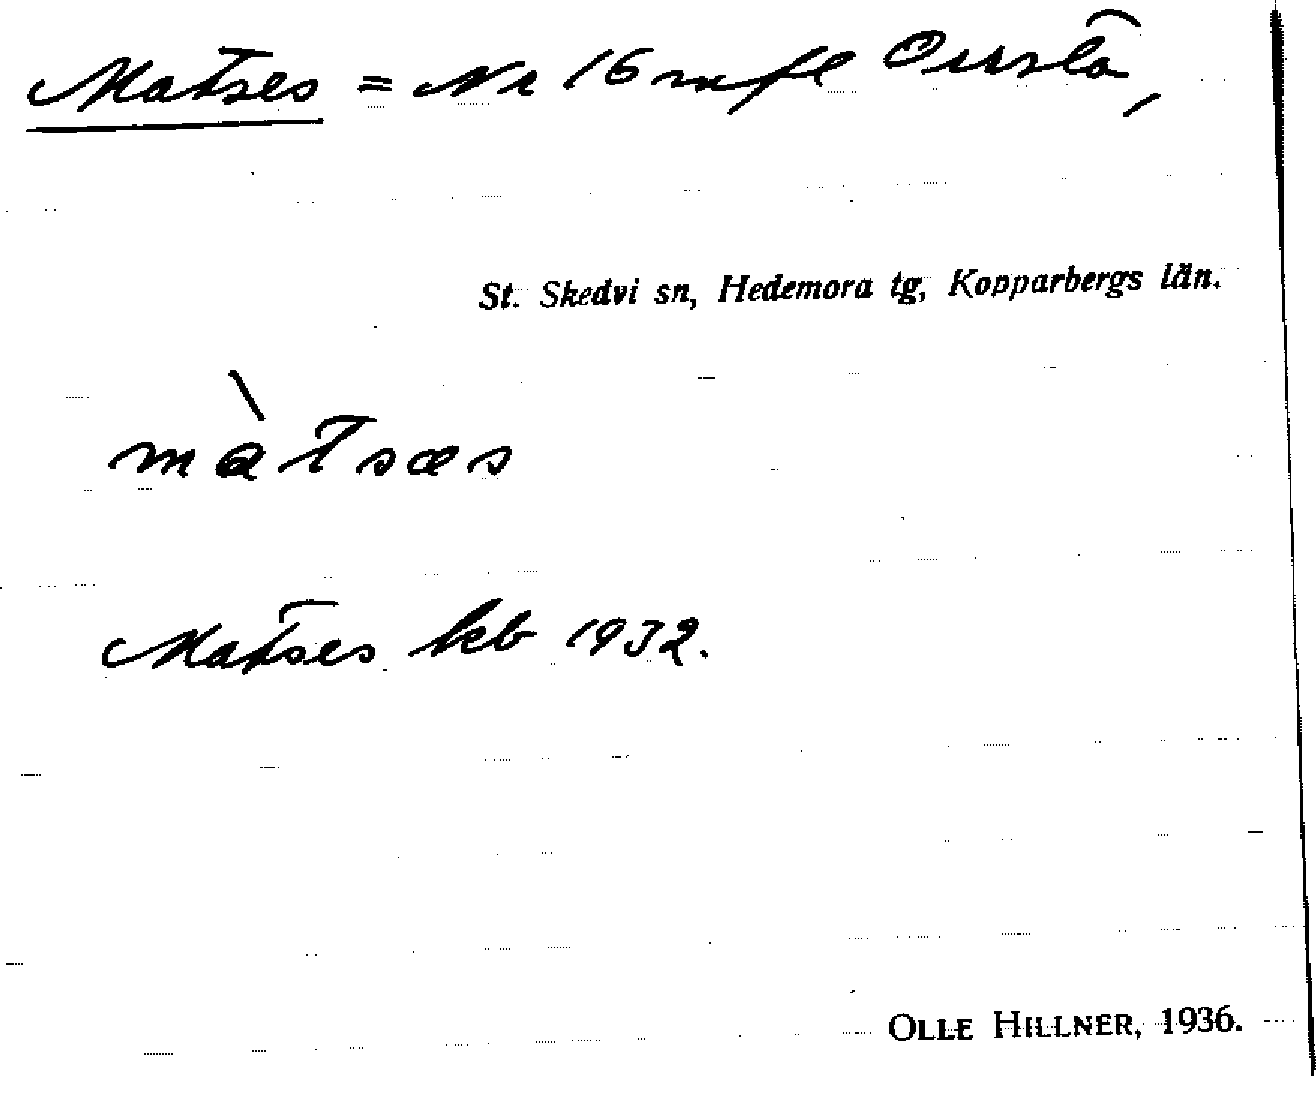 Matses = Nr 16 m fl Ovrsta,
St. Skedvi sn, Hedemora tg, Kopparbergs län.
màtsæs
Matses kb 1932.
OLLE HILLNER, 1936.